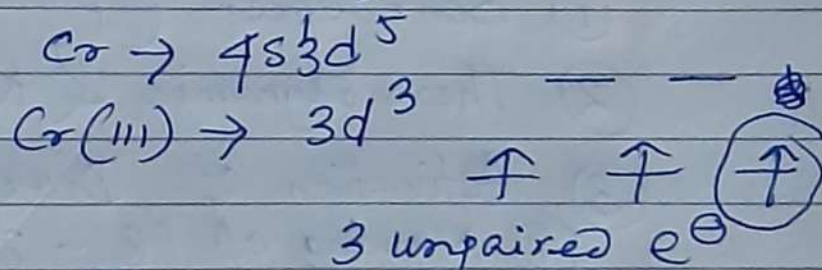 Cr → 4s¹3d⁵
Cr(III) → 3d³
3 unpaired e⊖